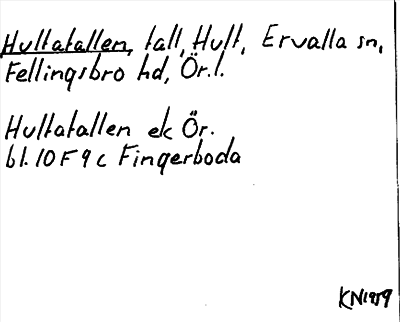 Hultatallen, tall, Hult, Ervalla sn,
Fellingsbro hd, Ör.l.
Hultatallen ek Ör.
bl. 10 F 9 c Fingerboda
KN1959